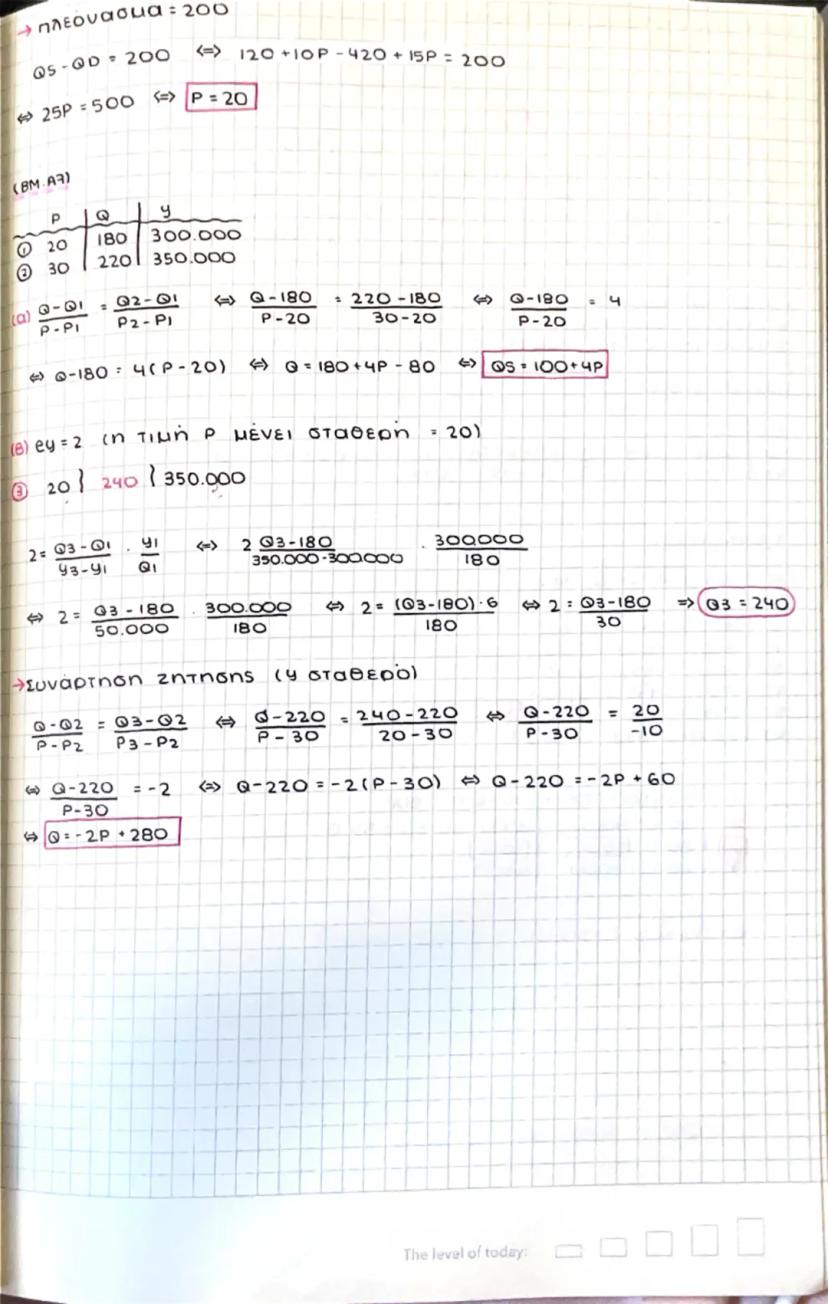 → πλεόνασμα = 200
QS - QD = 200 ⇔ 120 + 10P - 420 + 15P = 200
⇔ 25P = 500 ⇔ P = 20
(ΒΜ.Α7)
P | Q | Y
① 20 | 180 | 300.000
② 30 | 220 | 350.000
(α) Q-Q1/P-P1 = Q2-Q1/P2-P1 ⇔ Q-180/P-20 = 220-180/30-20 ⇔ Q-180/P-20 = 4
⇔ Q-180 = 4(P-20) ⇔ Q = 180 + 4P - 80 ⇔ QS = 100 + 4P
(β) ey = 2 (η τιμή P μένει σταθερή = 20)
③ 20 } 240 } 350.000
2 = Q3-Q1/Y3-Y1 · Y1/Q1 ⇔ 2 Q3-180/350.000-300.000 · 300.000/180
⇔ 2 = Q3-180/50.000 · 300.000/180 ⇔ 2 = (Q3-180)·6/180 ⇔ 2 = Q3-180/30 ⇒ Q3 = 240
→ Συνάρτηση ζήτησης (Y σταθερό)
Q-Q2/P-P2 = Q3-Q2/P3-P2 ⇔ Q-220/P-30 = 240-220/20-30 ⇔ Q-220/P-30 = 20/-10
⇔ Q-220/P-30 = -2 ⇔ Q-220 = -2(P-30) ⇔ Q-220 = -2P + 60
⇔ Q = -2P + 280
The level of today: